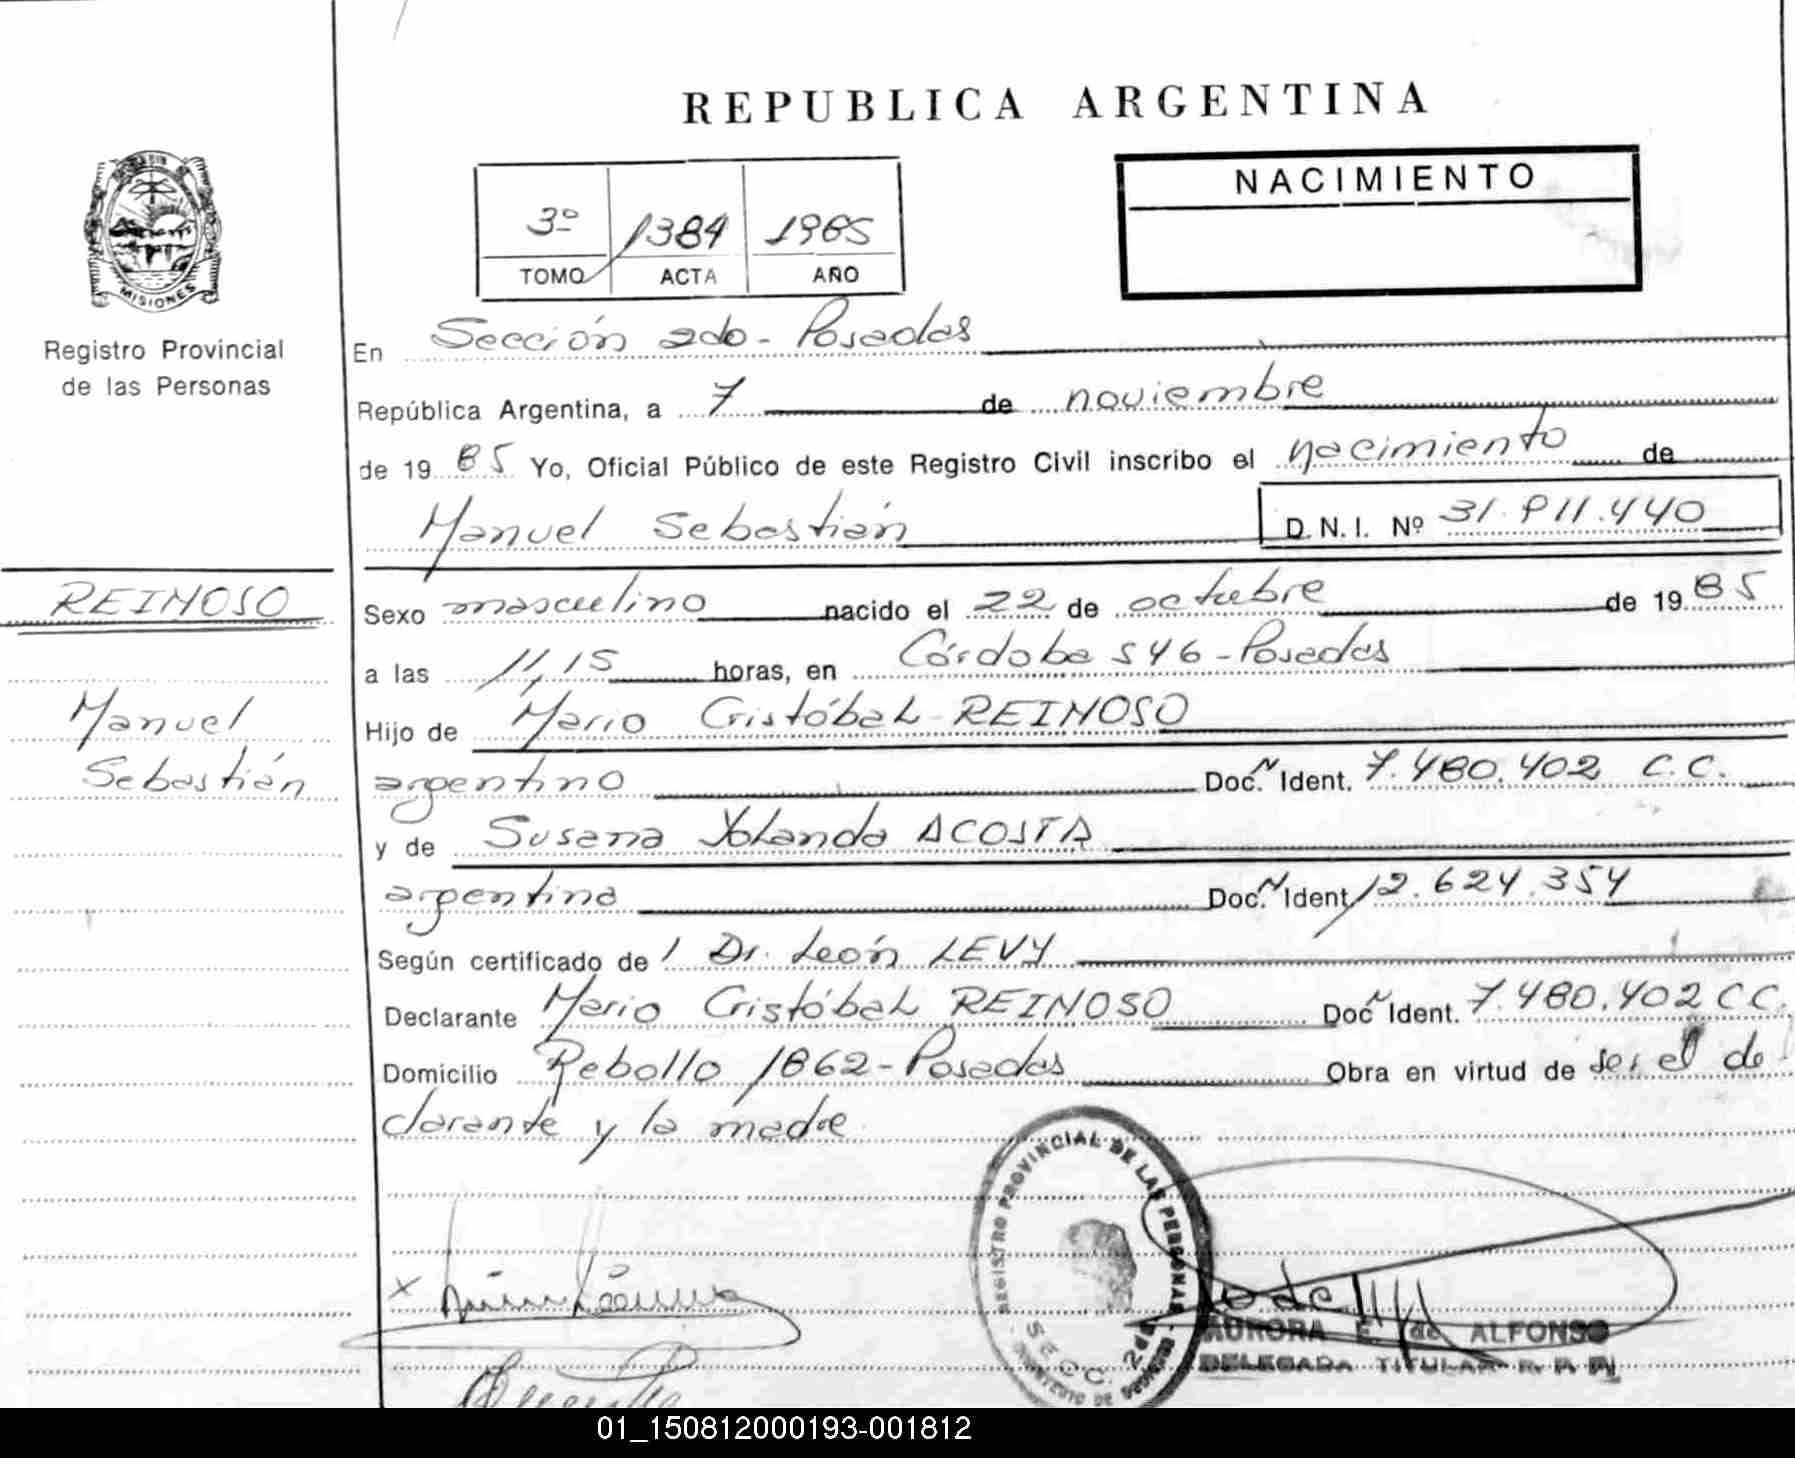 REPUBLICA ARGENTINA
MISIONES
Registro Provincial
de las Personas
3º 1384 1985
TOMO ACTA AÑO
NACIMIENTO
En Sección 2do - Posadas
República Argentina, a 7 de noviembre
de 19 85 Yo, Oficial Público de este Registro Civil inscribo el nacimiento de
Manuel Sebastián D.N.I. Nº 31.911.440
REINOSO
Manuel
Sebastián
Sexo masculino nacido el 22 de octubre de 19 85
a las 11,15 horas, en Córdoba 546 - Posadas
Hijo de Mario Cristóbal REINOSO
argentino Doc. Ident. 7.480.402 C.C.
y de Susana Yolanda ACOSTA
argentina Doc. Ident. 12.624.354
Según certificado de l Dr. León LEVY
Declarante Mario Cristóbal REINOSO Doc. Ident. 7.480.402 C C.
Domicilio Rebollo 1862 - Posadas Obra en virtud de ser el de
clarante y la madre
REGISTRO PROVINCIAL DE LAS PERSONAS
SECC. 2da
AURORA E. de ALFONSO
DELEGADA TITULAR R. P. P.
01_150812000193-001812